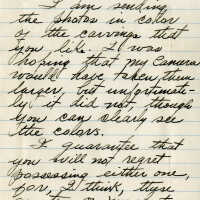 I am sending
the photos in color
of the carvings that
you like. I was
hoping that my camera
would have taken them
larger, but unfortunate-
ly it did not, though
you can clearly see
the colors.
I guarantee that
you will not regret
possessing either one,
for, I think, these